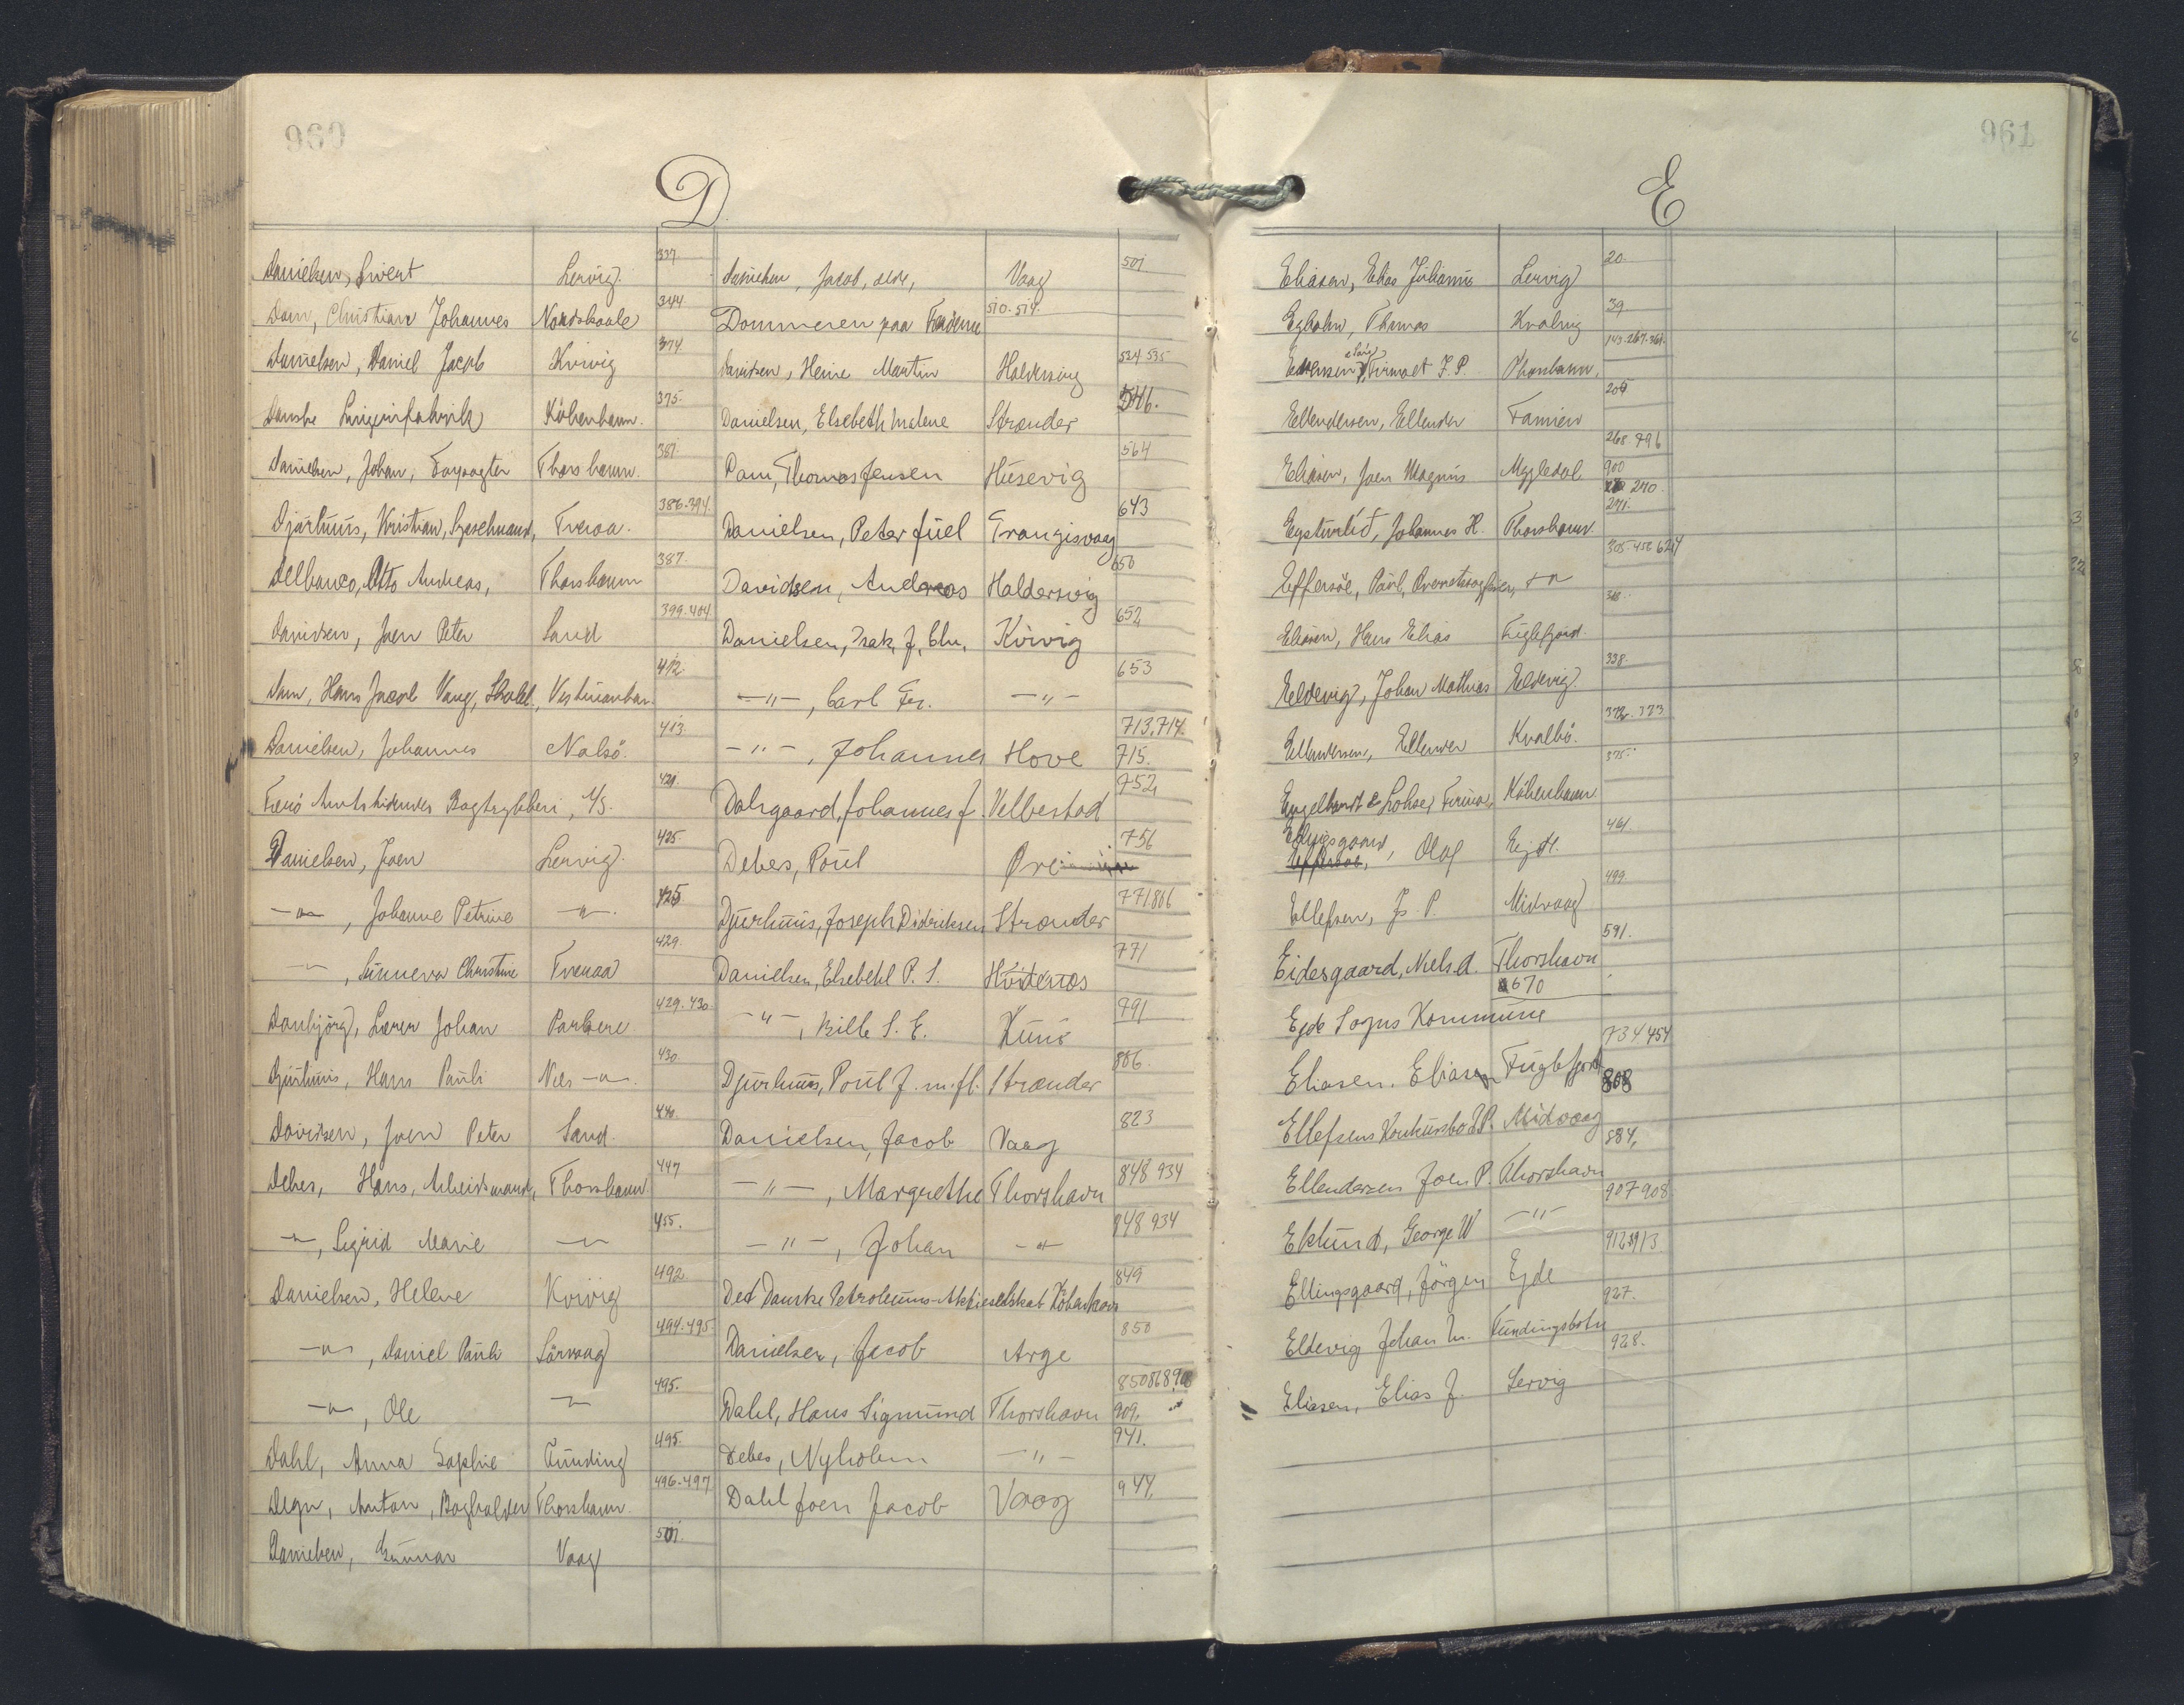 960
D
Danielsen, Sivert Lervig. 337
Dam, Christian Johannes Nordskaale 344
Danielsen, Daniel Jacob Kvivig 374
Danske København. 375
Danielsen, Johan, Thorshavn. 381
Djurhuus, Kristian, Tveraa. 386.394.
Delbanco, Otto Andreas, Thorshavn 387.
Davidsen, Joen Peter Sand 399.404.
Dam, Hans Jacob Vang, 412.
Danielsen, Johannes Nolsö. 413.
Færö Amtstidendes Bogtrykkeri, A/S. 421.
Danielsen, Joen Lervig. 425.
-"-, Johanne Petrine -"-. 425
-"-, Sunneva Christine Tveraa 429.
Danbjörg, Johan Porkere 429.430.
Djurhuus, Hans Pauli Nes 430.
Davidsen, Joen Peter Sand. 440.
Debes, Hans, Arbeidsmand, Thorshavn 447
-"-, Sigrid Marie -"- 455.
Danielsen, Helene Kvivig 492.
-"-, Daniel Pauli Sörvaag 494.495.
-"-, Ole -"- 495.
Dahl, Anna Sophie Funding 495.
Degn, Anton, Bogholder Thorshavn. 496.497.
Danielsen, Gunnar Vaag 501.
Danielsen, Jacob, Vaag 501
Dommeren paa Færöerne 510.514.
Davidsen, Heine Martin Haldersvig 534 535
Danielsen, Elsebeth Malene Strænder 546.
Dam, Thomas Jensen Husevig 564
Danielsen, Peter Juel Trangisvaag 643
Davidsen, Andreas Haldersvig 650
Danielsen, Isak, J. Chr. Kvivig 652
-"-, Carl Fr. -"- 653
-"-, Johannes Hove 713,714. 715.
Dalsgaard, Johannes J. Velbestad 752,
Debes, Poul Øre 756
Djurhuus, Joseph Didriksen Strænder 771 806
Danielsen, Elsebeth P. S. Hvidenæs 771
-"-, Bille S. E. Kunö 791
Djurhuus, Poul J. m. fl. Strænder 806.
Danielsen, Jacob Vaag 823
-"-, Margrethe Thorshavn 848 934
-"-, Johan -"- 848 934
Det Danske Petroleums-Aktieselskab København 849
Danielsen, Jacob Arge 850
Dahl, Hans Sigmund Thorshavn 850 868 908 909,
Debes, Nyholm -"- 941.
Dahl Joen Jacob Vaag 944,
961
E
Eliasen, Elias Julianus Lervig 20.
Egholm, Thomas Kvalvig 39
Firmaet J. P. Thorshavn. 143.267.361.
Ellendersen, Ellender Famien 204
Eliasen, Joen Magnus Mygledal 268 796 900
Eysturlíð, Johannes H. Thorshavn. 270. 271.
Effersöe, Poul, -"- 305.456 624
Eliasen, Hans Elias Fuglefjord.
Eldevig, Johan Mathias Eldevig. 338.
Ellendersen, Ellender Kvalbö. 372.373.
Engelhardt & Lohse, Firma, København 375.
Ellingsgaard, Olaf Ejde. 461.
Ellefsen, Js. P. Midvaag 499.
Eidesgaard, Niels A. Thorshavn 591.
Ejde Sogns Kommune 670
Eliasen, Eliasen Fuglefjord 734 454
Ellefsens Konkursbo J.P. Midvaag 808
Ellendersen Joen P. Thorshavn 884,
Eklund, George W -"- 907 908
Ellingsgaard, Jörgen Ejde 912 913
Eldevig Johan M. Fundingsbotn 927.
Eliasen, Elias J. Lervig 928.